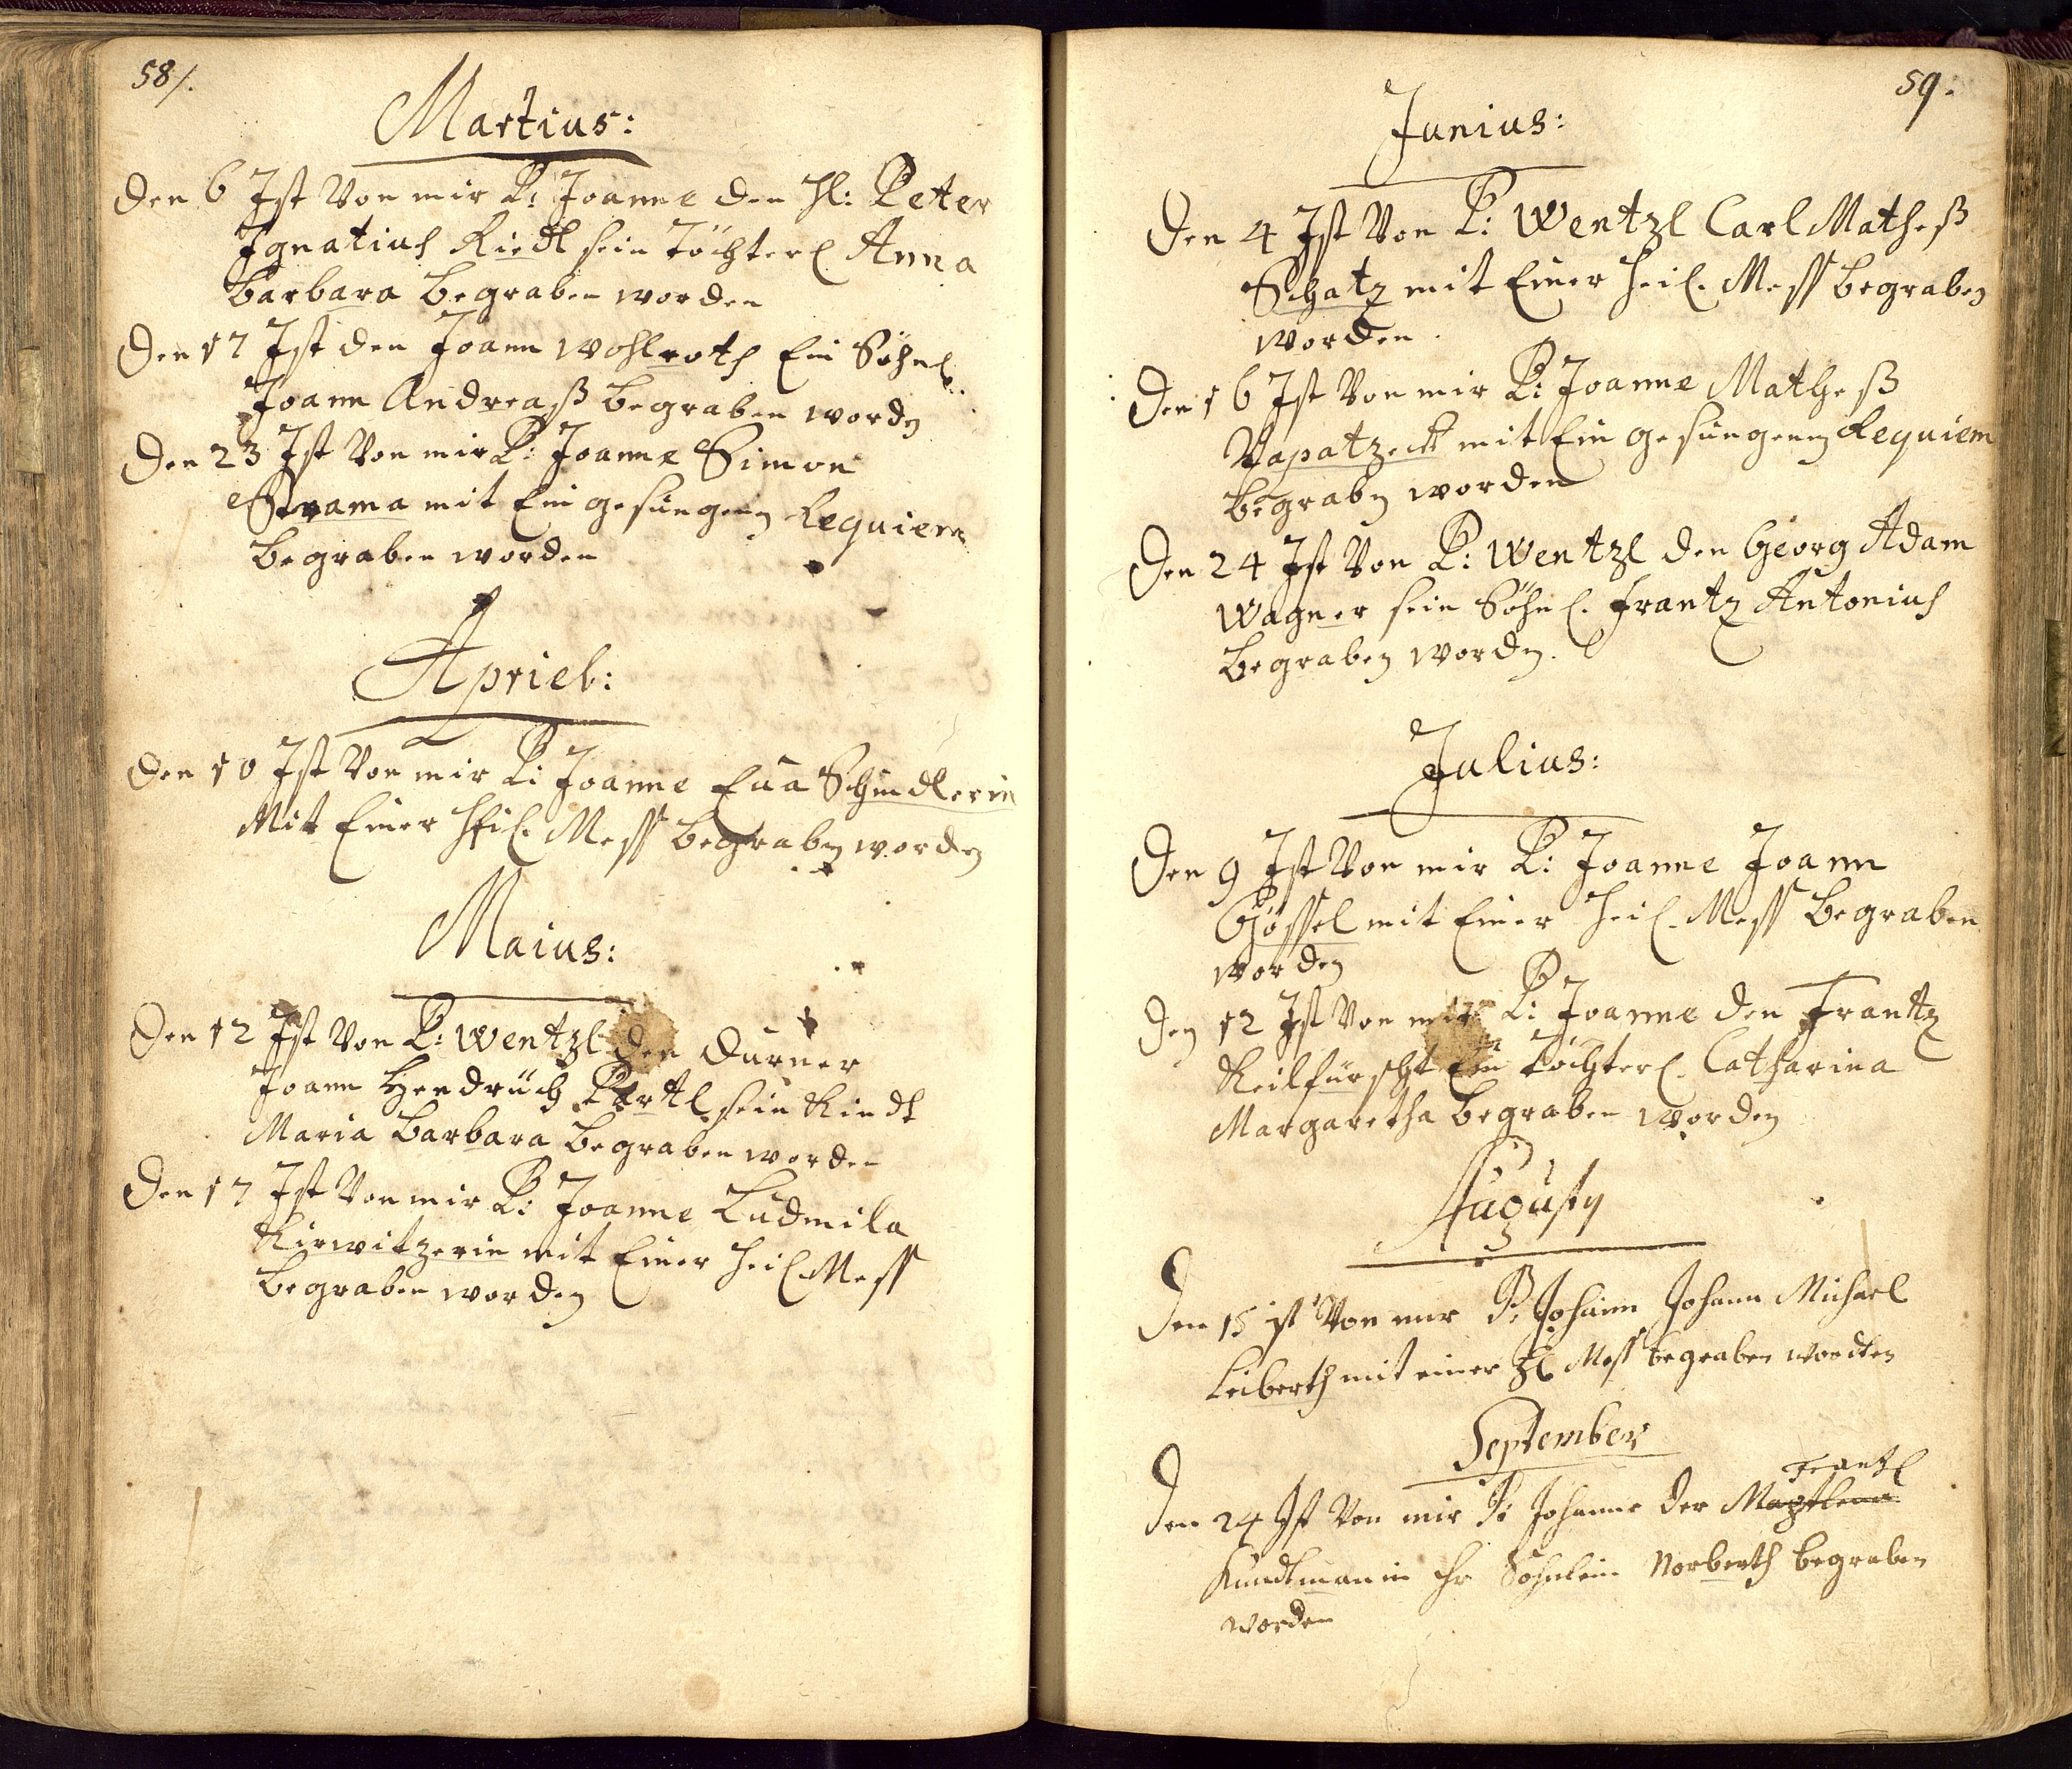 58/.
Martius:
Den 6 Ist Von mir P: Joanne den Hl: Peter
Ignatius Riedl sein Töchterl Anna
Barbara begraben worden
Den 17 Ist den Joann Wohlroth Ein Söhnl:
Joann Andreaß begraben worden
Den 23 Ist Von mir P: Joanne Simon
Strama mit Ein gesungenen Requiem
begraben worden
Apriel:
Den 10 Ist Von mir P: Joanne Eua Schindlerin
Mit Einer Heil. Mess begraben worden
Maius:
Den 12 Ist Von P: Wentzl den Durner
Joann Hendrüch Partl sein Kindt
Maria Barbara begraben worden
Den 17 Ist Von mir P: Joanne Ludmila
Kirwitzerin mit Einer Heil. Mess
begraben worden
59.
Junius:
Den 4 Ist Von P: Wentzl Carl Matheß
Schatz mit Einer Heil. Mess begraben
worden.
Den 16 Ist Von mir P: Joanne Matheß
mit Ein gesungenen Requiem
begraben worden
Den 24 Ist Von P: Wentzl den Georg Adam
Wagner sein Söhnl. Frantz Antonius
begraben worden.
Julius:
Den 9 Ist Von mir P: Joanne Joann
Gössel mit Einer Heil. Mess begraben
worden
Den 12 Ist Von mir P: Joanne den Frantz
Keilfürscht Ein Töchterl. Catharina
Margaretha begraben worden
Augusty
Den 15 ist Von mir P: Johann Johann Michael
Leiberth mit einer Hl Mess begraben wordten
September
Frantzl
Den 24 Ist Von mir P: Johanne der
Kundtmanin ihr Sohnlein Norberth begraben
worden